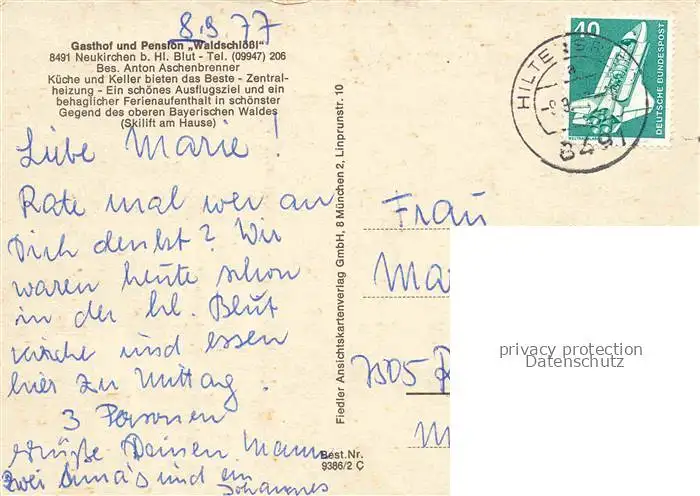 8.9.77
Gasthof und Pension „Waldschlößl"
8491 Neukirchen b. Hl. Blut - Tel. (09947) 206
Bes. Anton Aschenbrenner
Küche und Keller bieten das Beste - Zentral-
heizung - Ein schönes Ausflugsziel und ein
behaglicher Ferienaufenthalt in schönster
Gegend des oberen Bayerischen Waldes
(Skilift am Hause)
Liebe Marie!
Rate mal wer an
Dich denkt? Wir
waren heute schon
in der hl. Blut
kirche und essen
hier zu Mittag.
3 Personen
Grüße Deinen Mann
zwei Anna's und ein
Johannes
Fiedler Ansichtskartenverlag GmbH, 8 München 2, Linprunstr. 10
Best.Nr.
9386/2 Ç
40
DEUTSCHE BUNDESPOST
8491
Frau
Ma
privacy protection
Datenschutz